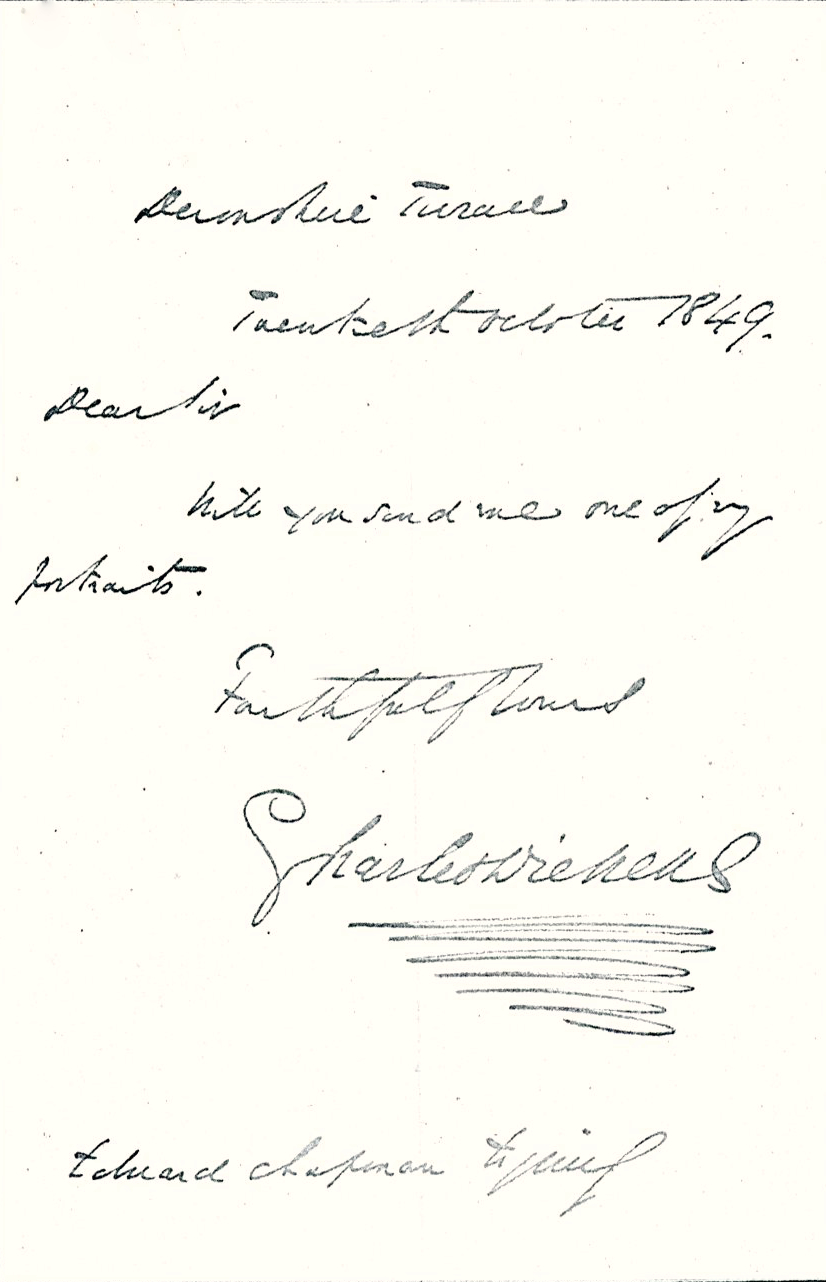 Devonshire Terrace
Twentieth October 1849.
Dear Sir
Will you send me one of my
portraits.
Faithfully Yours
Charles Dickens
Edward Chapman Esquire